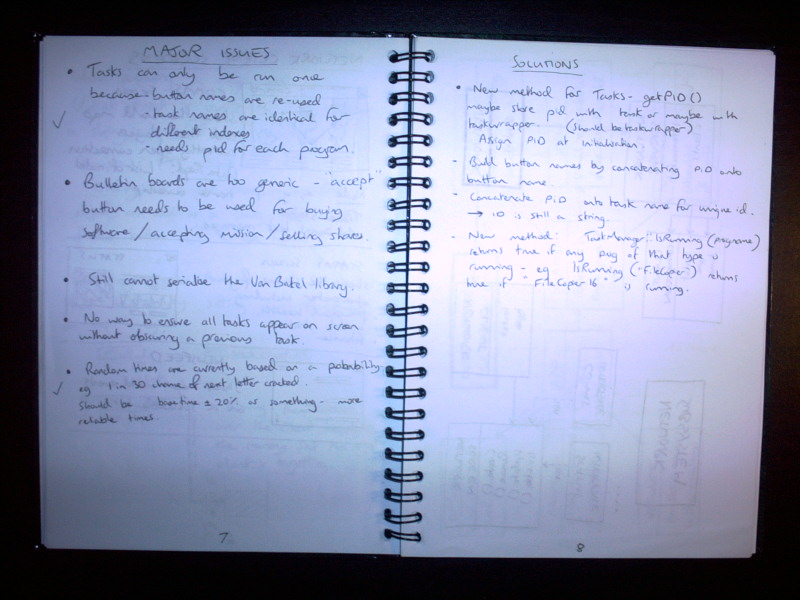 MAJOR ISSUES
• Tasks can only be run once
because - button names are re-used
- task names are identical for
different indexes
- needs pid for each program.
• Bulletin boards are too generic - "accept"
button needs to be used for buying
software / accepting mission / selling shares.
• Still cannot serialise the Van Bakel library.
• No way to ensure all tasks appear on screen
without obscuring a previous task.
• Random times are currently based on a probability.
eg 1 in 30 chance of next letter cracked.
should be basetime ± 20% or something - more
reliable times.
7
SOLUTIONS
• New method for Tasks - getPID()
maybe store pid with task or maybe with
taskwrapper. (should be taskwrapper)
Assign PID at initialisation.
- Build button names by concatenating PID onto
button name.
- Concatenate PID onto task name for unique id.
→ ID is still a string.
- New method: TaskManager::IsRunning(progname)
returns true if any prog of that type is
running - eg IsRunning("FileCopier") returns
true if "FileCopier 16" is running.
8